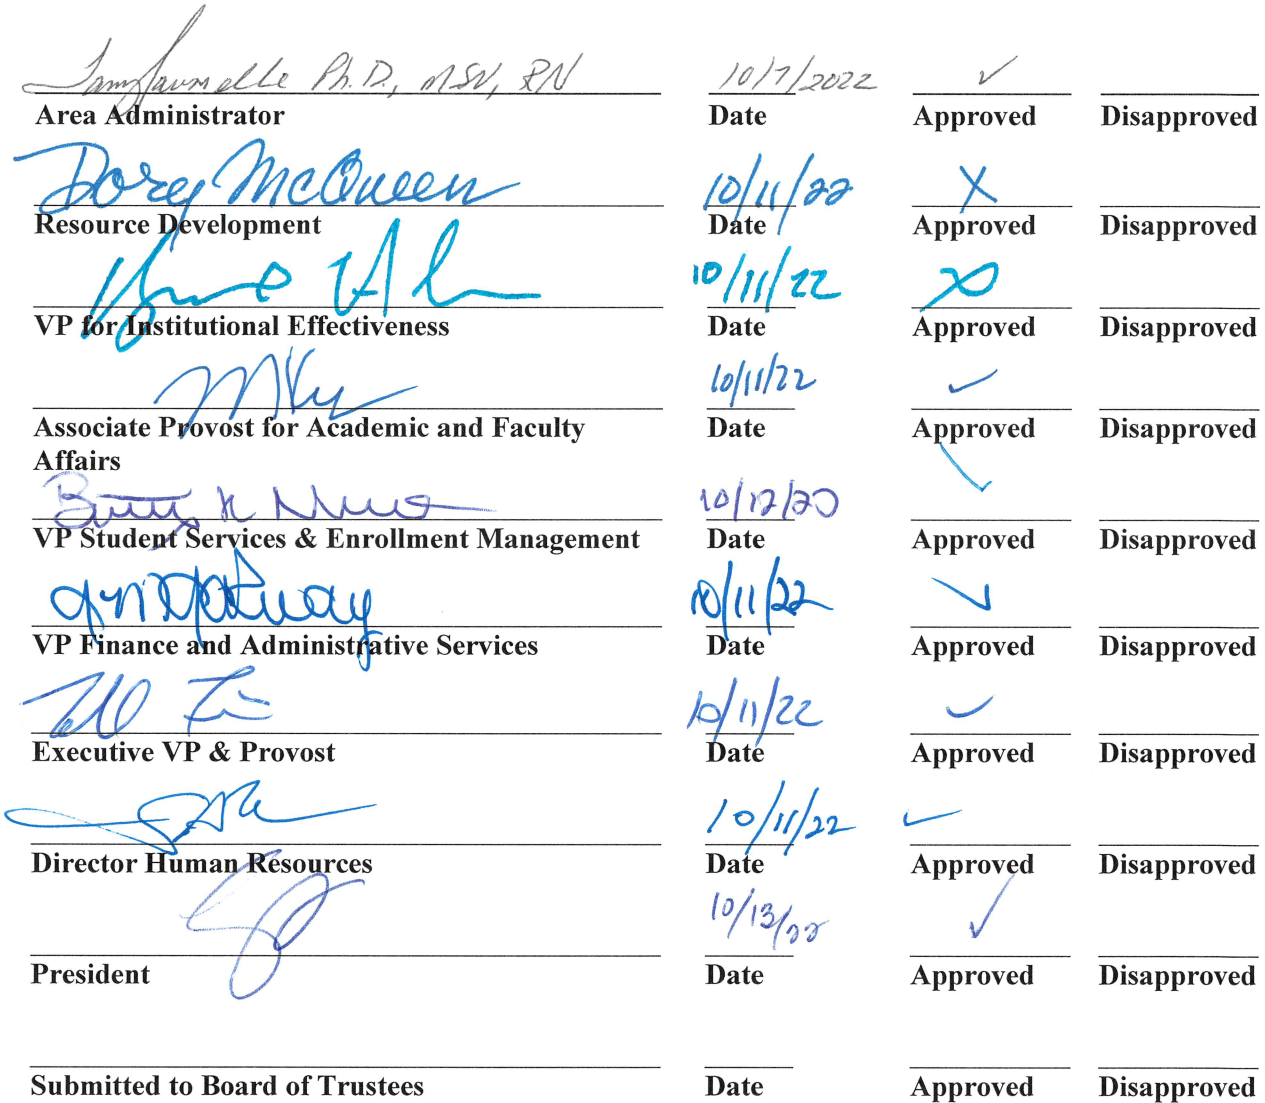 Ph.D., MSN, RN 10/7/2022 ✓
Area Administrator Date Approved Disapproved
Dorey McQueen 10/11/22 X
Resource Development Date Approved Disapproved
10/11/22
VP for Institutional Effectiveness Date Approved Disapproved
10/11/22 ✓
Associate Provost for Academic and Faculty Date Approved Disapproved
Affairs
10/12/20 ✓
VP Student Services & Enrollment Management Date Approved Disapproved
10/11/22 ✓
VP Finance and Administrative Services Date Approved Disapproved
10/11/22 ✓
Executive VP & Provost Date Approved Disapproved
10/11/22 ✓
Director Human Resources Date Approved Disapproved
10/13/22 ✓
President Date Approved Disapproved
Submitted to Board of Trustees Date Approved Disapproved